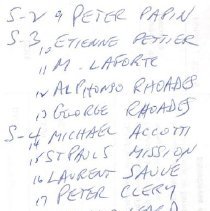 S-2 9 PETER PAPIN
S-3 10 ETIENNE PETTIER
11 M. LAFORTE
12 ALPHONSO RHOADES
13 GEORGE RHOADES
S-4 14 MICHAEL ACCOTTI
15 ST PAULS MISSION
16 LAURENT SAUVÉ
17 PETER CLERY